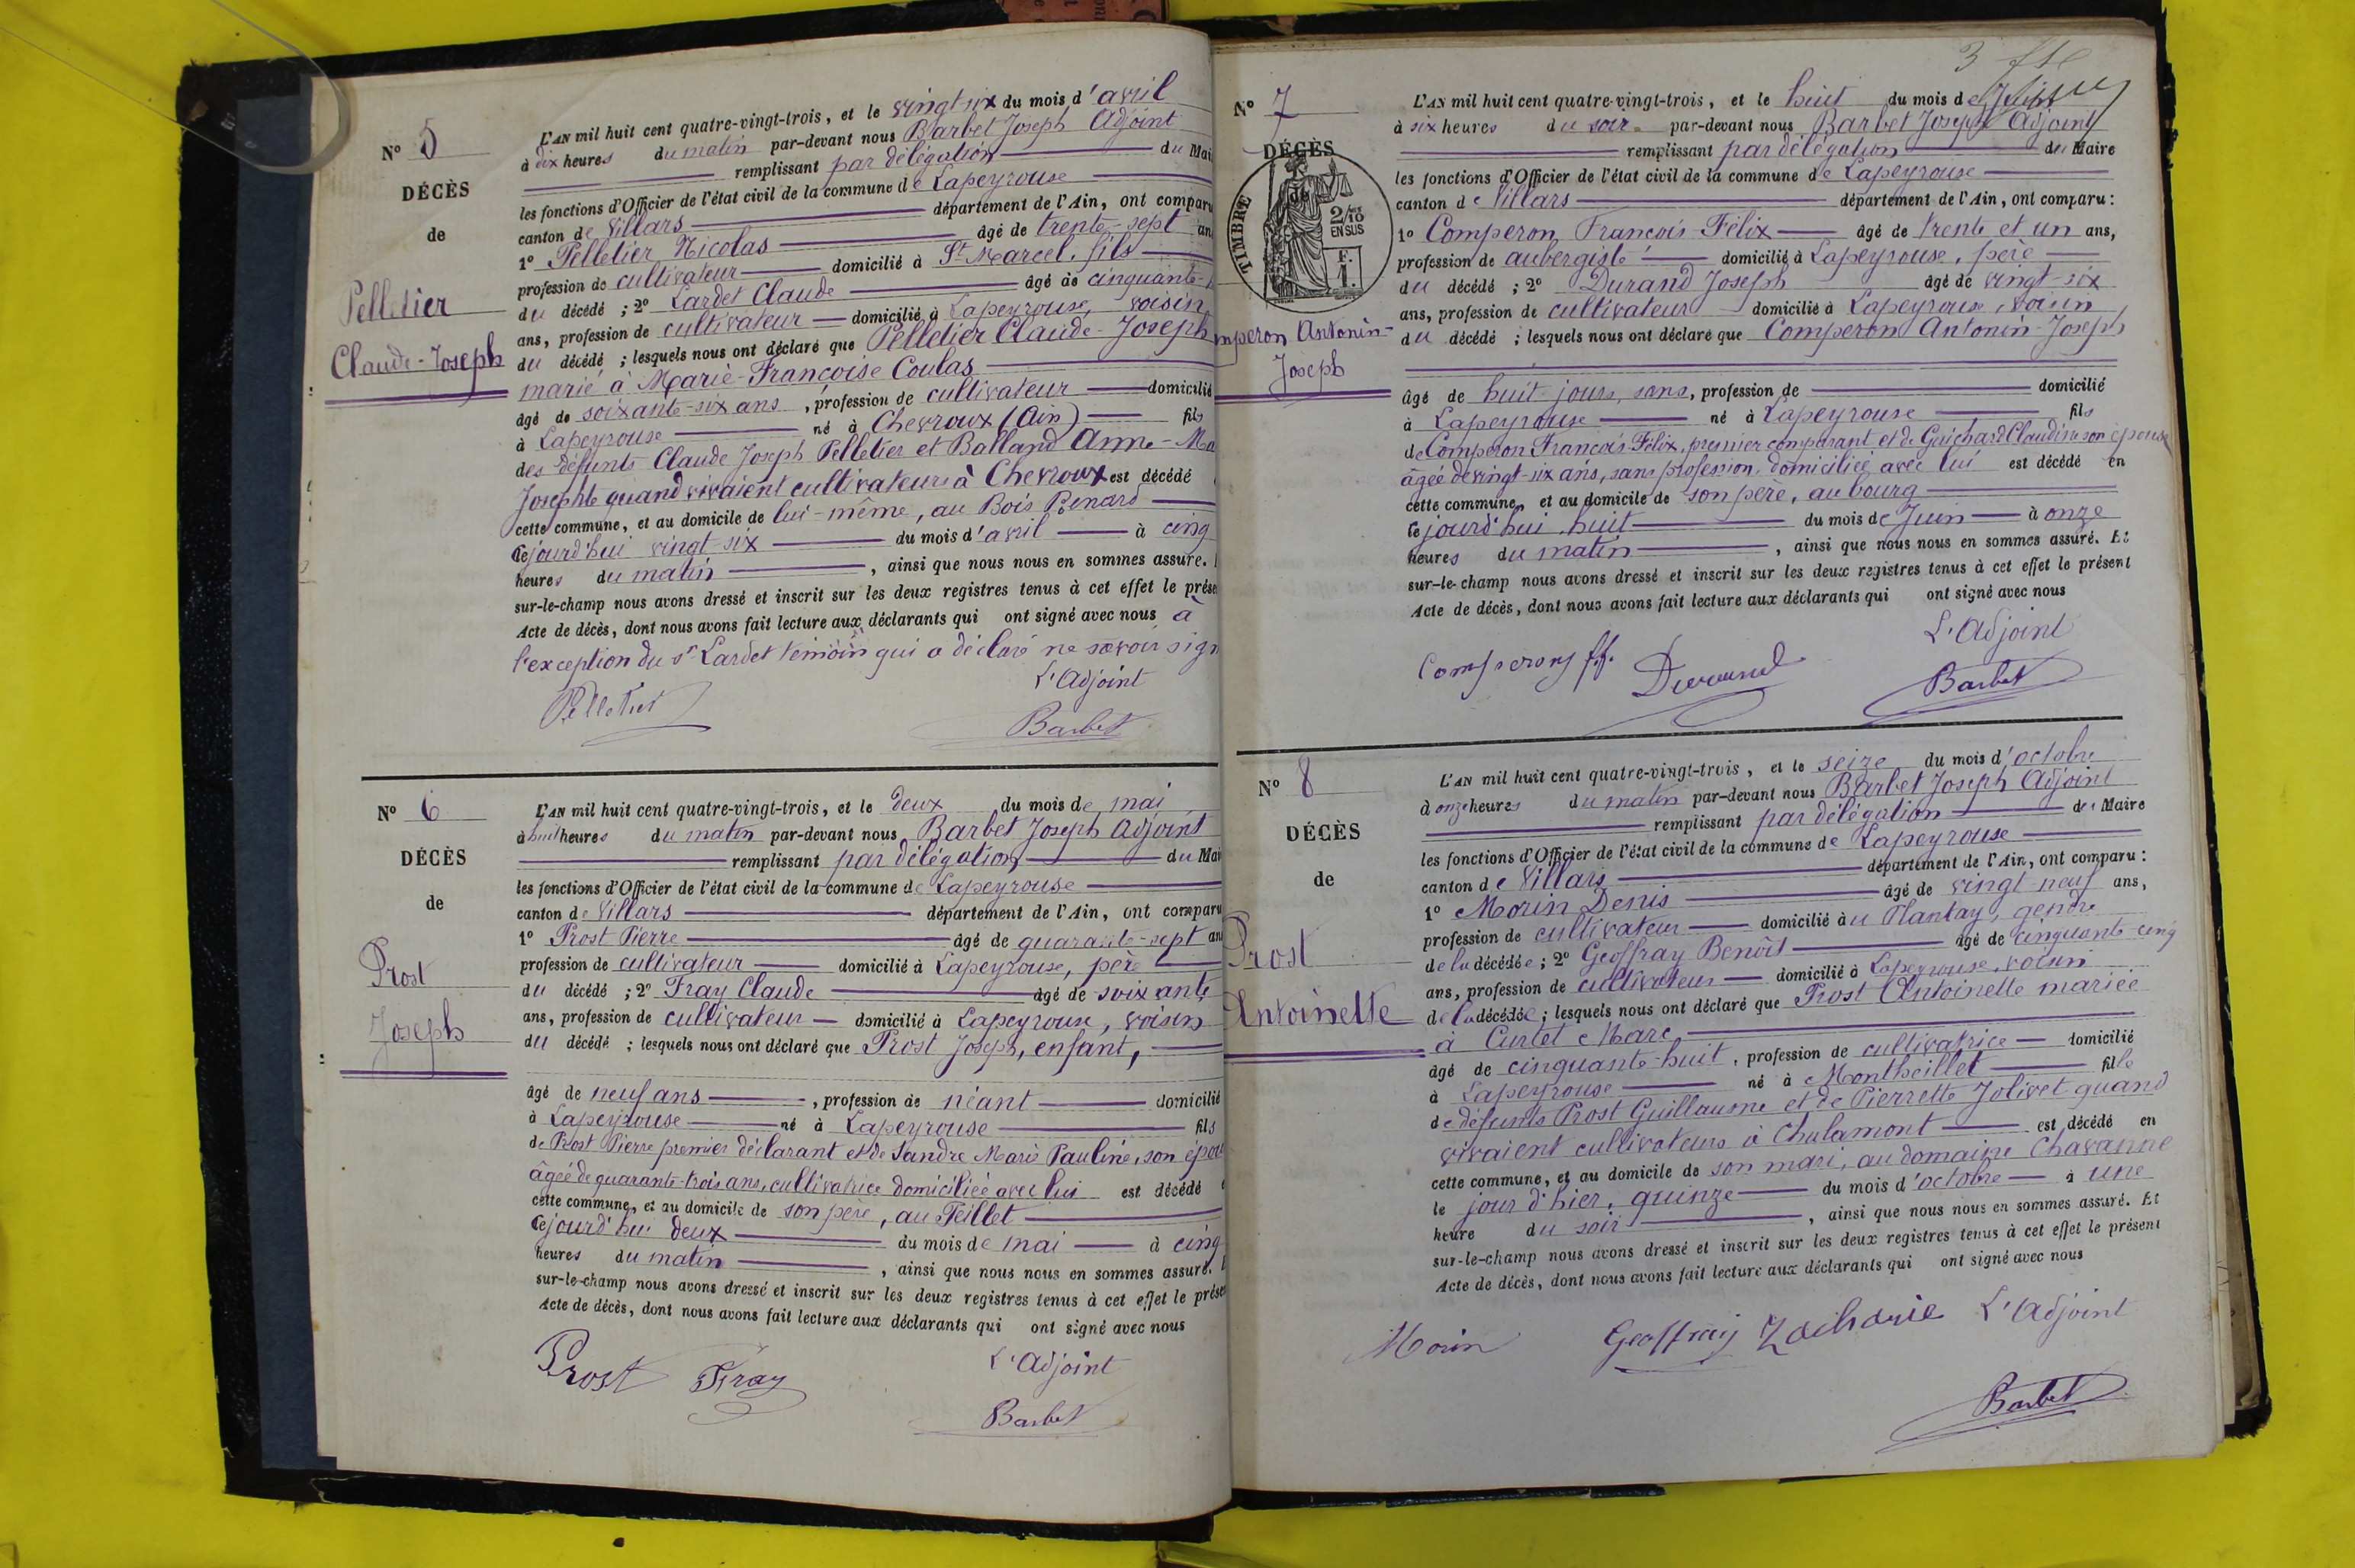 N° 5
DÉCÈS
de
Pelletier
Claude-Joseph
L'AN mil huit cent quatre-vingt-trois, et le vingt-six du mois d'avril
à dix heures du matin par-devant nous Barbet Joseph Adjoint
remplissant par délégation du Mai
les fonctions d'Officier de l'état civil de la commune de Lapeyrouse
canton de Villars département de l'Ain, ont comparu
1° Pelletier Nicolas âgé de trente-sept an
profession de cultivateur domicilié à St Marcel, fils
du décédé ; 2° Lardet Claude âgé de cinquante-
ans, profession de cultivateur domicilié à Lapeyrouse, voisin
du décédé ; lesquels nous ont déclaré que Pelletier Claude-Joseph
marié à Marie-Françoise Coulas
âgé de soixante-six ans, profession de cultivateur domicilié
à Lapeyrouse né à Chevroux (Ain) fils
des défunts Claude Joseph Pelletier et Balland Anne-Ma
Josephte quand vivaient cultivateurs à Chevroux est décédé
cette commune, et au domicile de lui-même, au Bois Renard
cejourd'hui vingt-six du mois d'avril à cinq
heures du matin, ainsi que nous nous en sommes assuré.
sur-le-champ nous avons dressé et inscrit sur les deux registres tenus à cet effet le prése
Acte de décès, dont nous avons fait lecture aux déclarants qui ont signé avec nous à
l'exception du sr Lardet témoin qui a déclaré ne savoir sign
L'Adjoint
Pelletier
Barbet
N° 6
DÉCÈS
de
Prost
Joseph
L'AN mil huit cent quatre-vingt-trois, et le deux du mois de mai
à huit heures du matin par-devant nous Barbet Joseph Adjoint
remplissant par délégation du Mai
les fonctions d'Officier de l'état civil de la commune de Lapeyrouse
canton de Villars département de l'Ain, ont comparu
1° Prost Pierre âgé de quarante-sept an
profession de cultivateur domicilié à Lapeyrouse, père
du décédé ; 2° Fray Claude âgé de soixante
ans, profession de cultivateur domicilié à Lapeyrouse, voisin
du décédé ; lesquels nous ont déclaré que Prost Joseph, enfant,
âgé de neuf ans, profession de néant domicilié
à Lapeyrouse né à Lapeyrouse fils
de Prost Pierre premier déclarant et de Sandre Marie Pauline, son épou
âgée de quarante-trois ans, cultivatrice domiciliée avec lui est décédé
cette commune, et au domicile de son père, au Teillet
cejourd'hui deux du mois de mai à cinq
heures du matin, ainsi que nous nous en sommes assuré.
sur-le-champ nous avons dressé et inscrit sur les deux registres tenus à cet effet le prése
Acte de décès, dont nous avons fait lecture aux déclarants qui ont signé avec nous
L'Adjoint
Prost Fray
Barbet
N° 7
DÉCÈS
de
TIMBRE
2/10 EN SUS
F. 1.
mperon Antonin-
Joseph
L'AN mil huit cent quatre-vingt-trois, et le huit du mois de Juin
à six heures du soir par-devant nous Barbet Joseph Adjoint
remplissant par délégation du Maire
les fonctions d'Officier de l'état civil de la commune de Lapeyrouse
canton de Villars département de l'Ain, ont comparu :
1° Comperon François-Félix âgé de trente et un ans,
profession de aubergiste domicilié à Lapeyrouse, père
du décédé ; 2° Durand Joseph âgé de vingt-six
ans, profession de cultivateur domicilié à Lapeyrouse voisin
du décédé ; lesquels nous ont déclaré que Comperon Antonin-Joseph
âgé de huit jours, sans, profession de domicilié
à Lapeyrouse né à Lapeyrouse fils
de Comperon François-Félix, premier comparant et de Guichard Claudine son épouse
âgée de vingt-six ans, sans profession, domiciliée avec lui est décédé en
cette commune, et au domicile de son père, au bourg
cejourd'hui huit du mois de Juin à onze
heures du matin, ainsi que nous nous en sommes assuré. Et
sur-le-champ nous avons dressé et inscrit sur les deux registres tenus à cet effet le présent
Acte de décès, dont nous avons fait lecture aux déclarants qui ont signé avec nous
L'Adjoint
Comperon f.f. Durand
Barbet
N° 8
DÉCÈS
de
Prost
Antoinette
L'AN mil huit cent quatre-vingt-trois, et le seize du mois d'octobre
à onze heures du matin par-devant nous Barbet Joseph Adjoint
remplissant par délégation du Maire
les fonctions d'Officier de l'état civil de la commune de Lapeyrouse
canton de Villars département de l'Ain, ont comparu :
1° Morin Denis âgé de vingt neuf ans,
profession de cultivateur domicilié au Plantay, gendre
de la décédée ; 2° Geoffray Benoît âgé de cinquante-cinq
ans, profession de cultivateur domicilié à Lapeyrouse, voisin
de la décédée ; lesquels nous ont déclaré que Prost Antoinette mariée
à Curtet Marc,
âgé de cinquante-huit, profession de cultivatrice domicilié
à Lapeyrouse né à Montheillet fille
de défunts Prost Guillaume et de Pierrette Jolivet quand
vivaient cultivateurs à Chalamont est décédé en
cette commune, et au domicile de son mari, au domaine Chavanne
le jour d'hier, quinze du mois d'octobre à une
heure du soir, ainsi que nous nous en sommes assuré. Et
sur-le-champ nous avons dressé et inscrit sur les deux registres tenus à cet effet le présent
Acte de décès, dont nous avons fait lecture aux déclarants qui ont signé avec nous
Morin Geoffray Zacharie L'Adjoint
Barbet